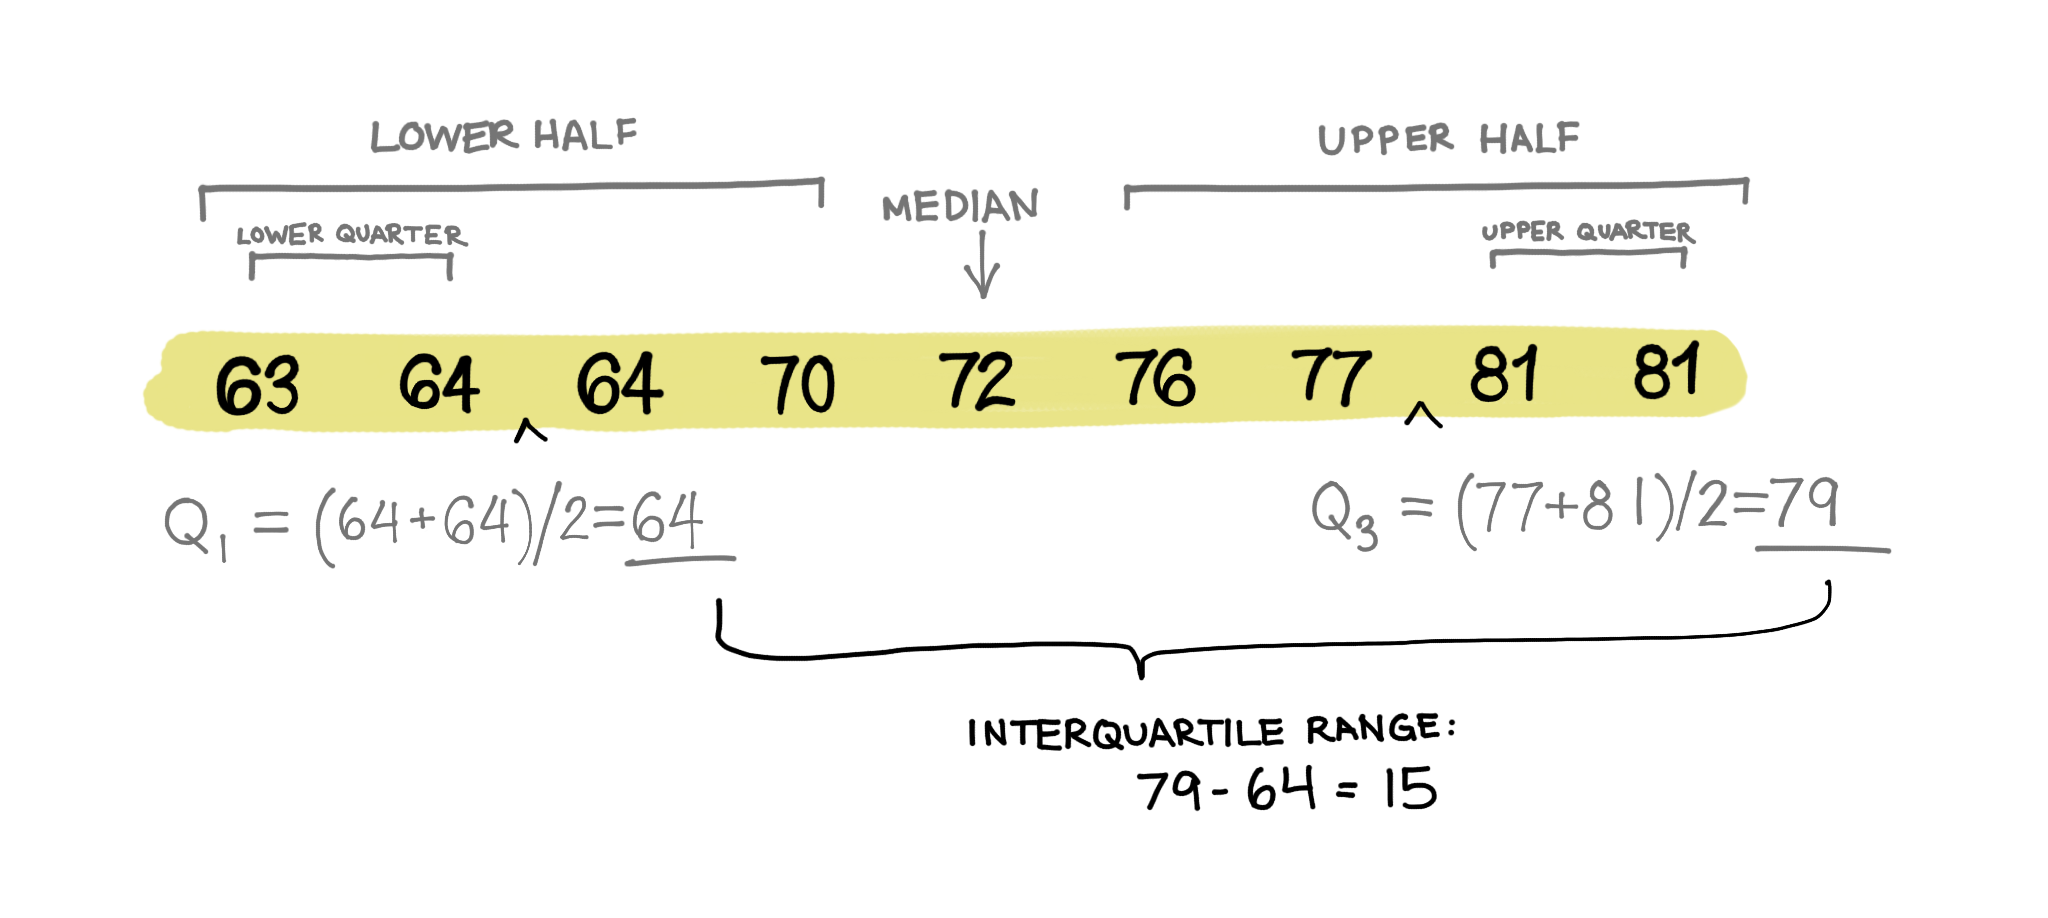 LOWER HALF
UPPER HALF
MEDIAN
LOWER QUARTER
UPPER QUARTER
63 64 64 70 72 76 77 81 81
Q₁ = (64+64)/2=64
Q₃ = (77+81)/2=79
INTERQUARTILE RANGE:
79-64 = 15